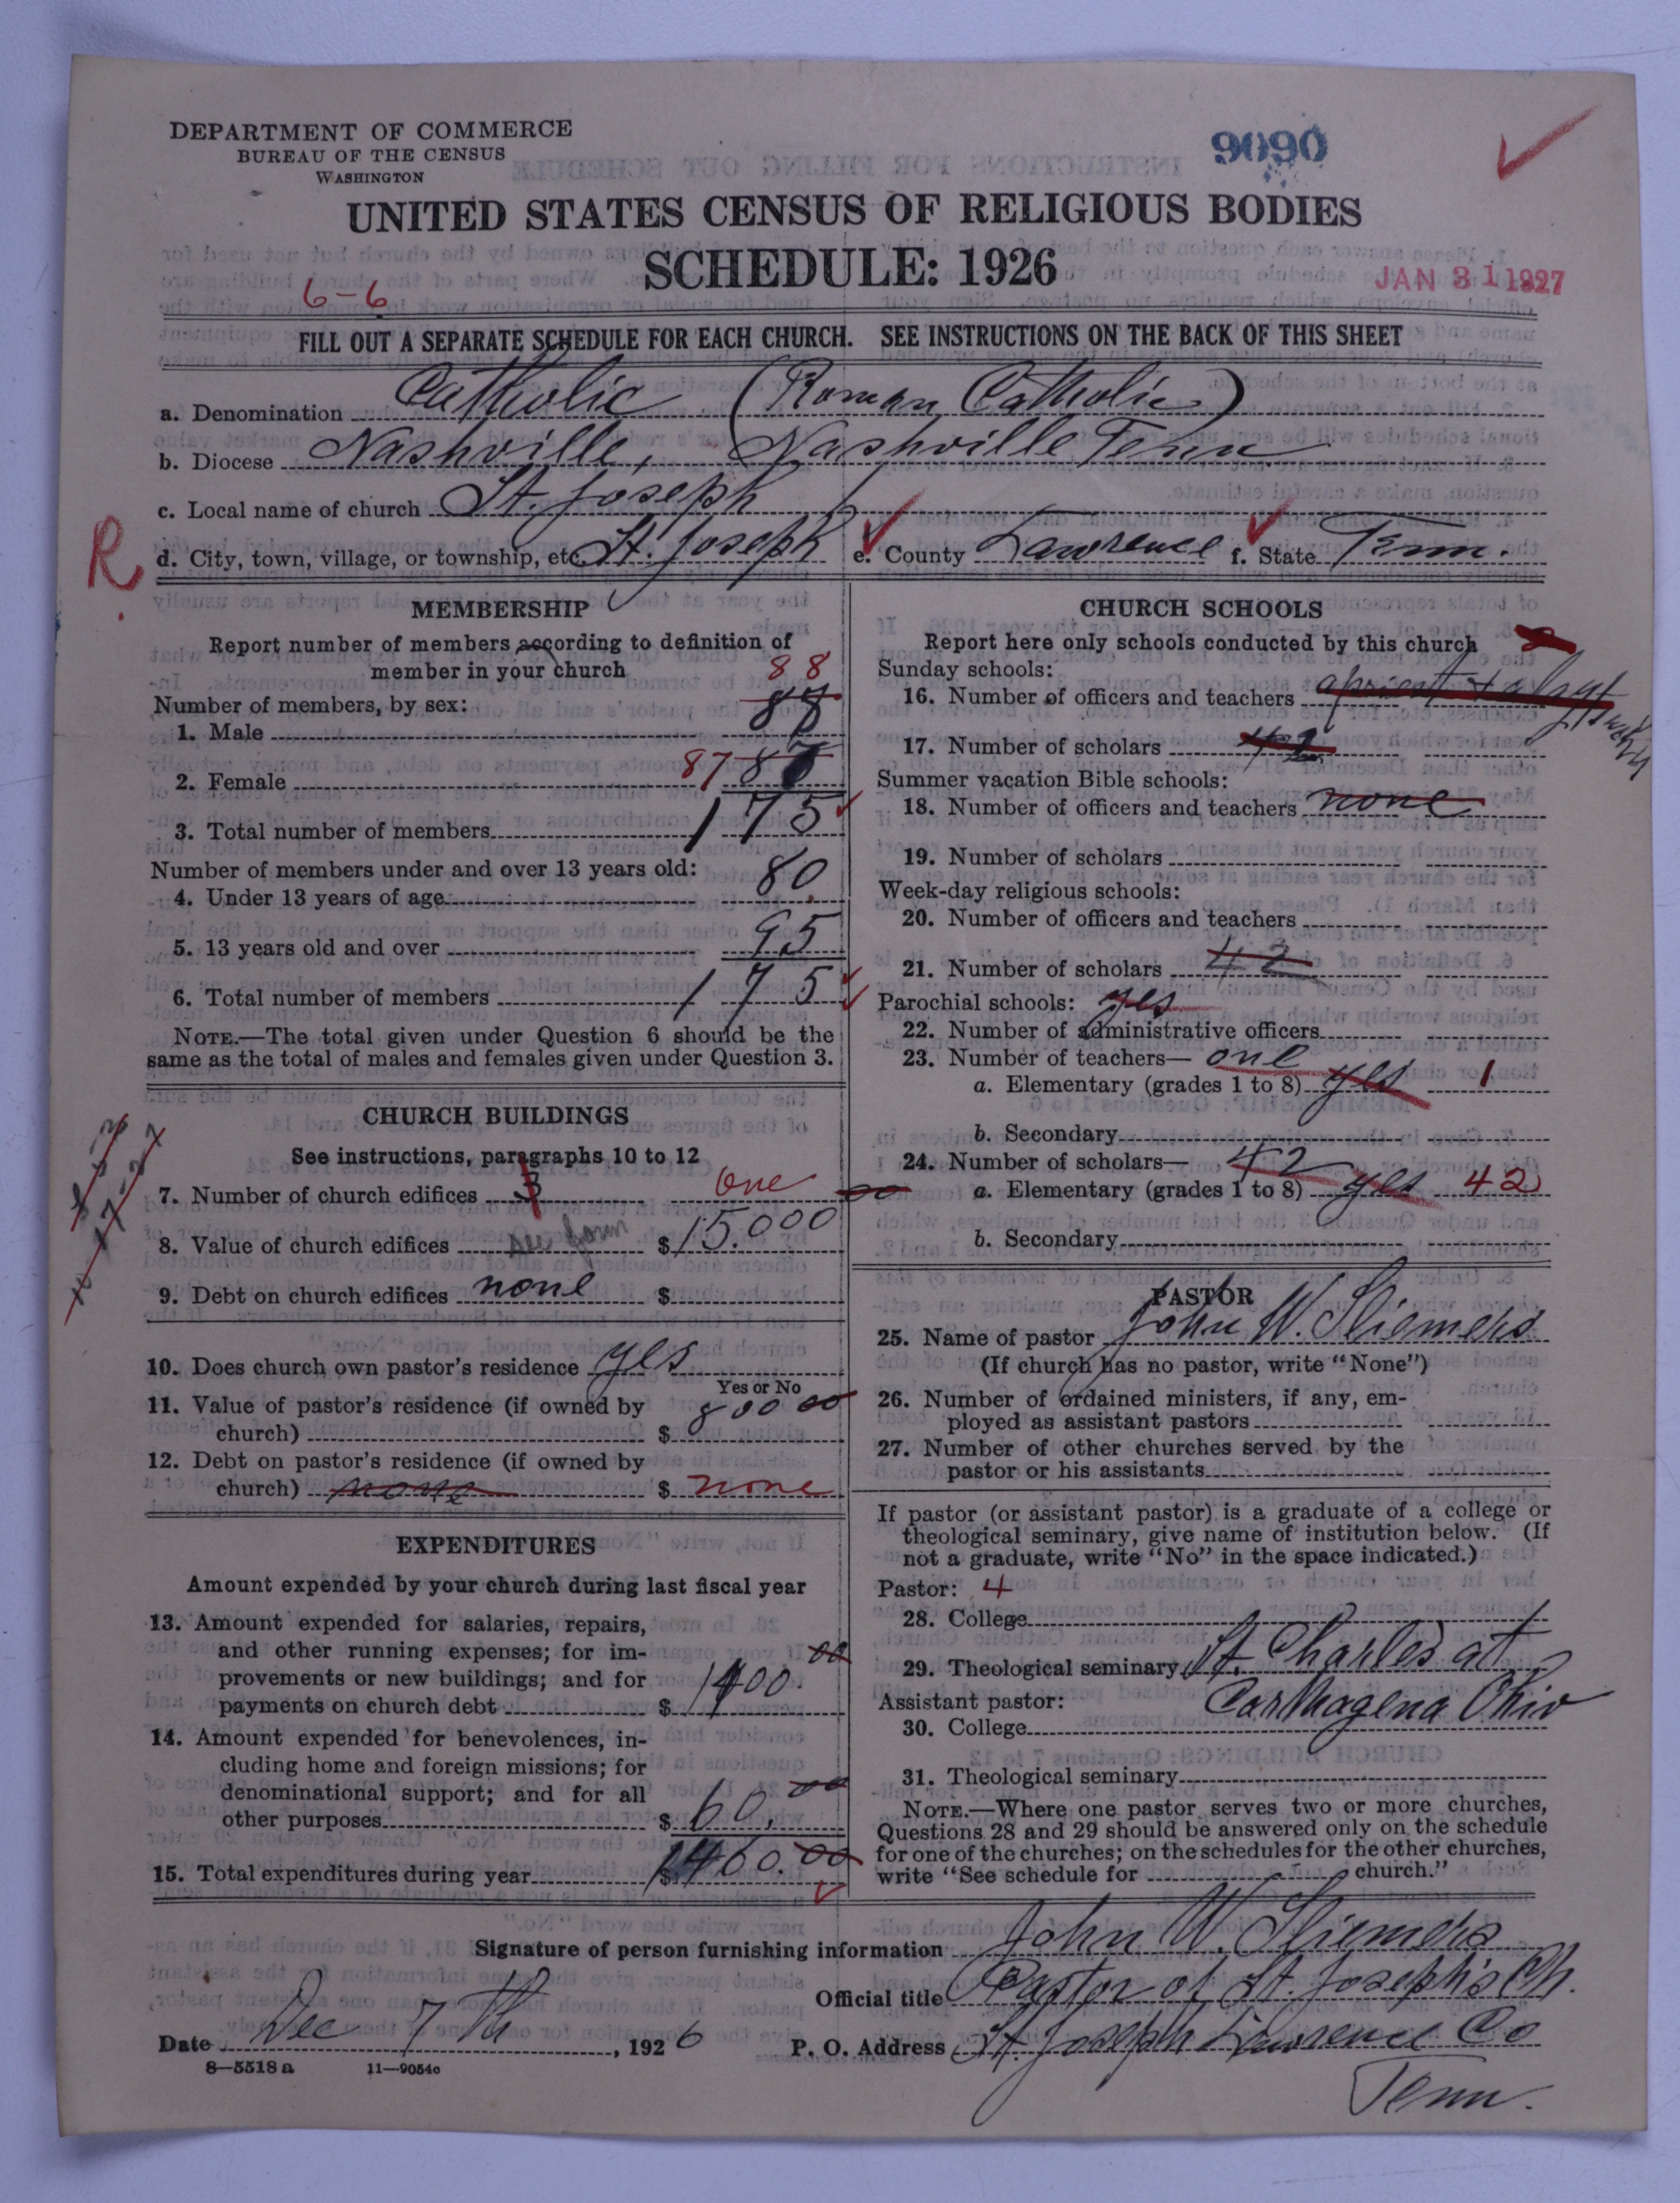 DEPARTMENT OF COMMERCE
BUREAU OF THE CENSUS
WASHINGTON
9090
UNITED STATES CENSUS OF RELIGIOUS BODIES
SCHEDULE: 1926
JAN 31 1927
6-6
FILL OUT A SEPARATE SCHEDULE FOR EACH CHURCH. SEE INSTRUCTIONS ON THE BACK OF THIS SHEET
a. Denomination Catholic (Roman Catholic)
b. Diocese Nashville, Nashville Tenn.
c. Local name of church St. Joseph
R d. City, town, village, or township, etc. St. Joseph e. County Lawrence f. State Tenn.
MEMBERSHIP
Report number of members according to definition of
member in your church
88
Number of members, by sex:
1. Male 88
2. Female 87 87
3. Total number of members 175
Number of members under and over 13 years old:
4. Under 13 years of age 80
5. 13 years old and over 95
6. Total number of members 175
NOTE.—The total given under Question 6 should be the
same as the total of males and females given under Question 3.
CHURCH BUILDINGS
See instructions, paragraphs 10 to 12
7. Number of church edifices One
8. Value of church edifices $15.000
9. Debt on church edifices none $
10. Does church own pastor's residence yes
Yes or No
11. Value of pastor's residence (if owned by
church) $ 800 00
12. Debt on pastor's residence (if owned by
church) none $ none
EXPENDITURES
Amount expended by your church during last fiscal year
13. Amount expended for salaries, repairs,
and other running expenses; for im-
provements or new buildings; and for
payments on church debt $ 1400.00
14. Amount expended for benevolences, in-
cluding home and foreign missions; for
denominational support; and for all
other purposes $ 60.00
15. Total expenditures during year $1460.00
CHURCH SCHOOLS
Report here only schools conducted by this church
Sunday schools:
16. Number of officers and teachers
17. Number of scholars 42
Summer vacation Bible schools:
18. Number of officers and teachers none
19. Number of scholars
Week-day religious schools:
20. Number of officers and teachers
21. Number of scholars 42
Parochial schools: yes
22. Number of administrative officers
23. Number of teachers— one
a. Elementary (grades 1 to 8) yes 1
b. Secondary
24. Number of scholars— 42
a. Elementary (grades 1 to 8) yes 42
b. Secondary
PASTOR
25. Name of pastor John W. Sliemers
(If church has no pastor, write "None")
26. Number of ordained ministers, if any, em-
ployed as assistant pastors
27. Number of other churches served by the
pastor or his assistants
If pastor (or assistant pastor) is a graduate of a college or
theological seminary, give name of institution below. (If
not a graduate, write "No" in the space indicated.)
Pastor: 4
28. College
29. Theological seminary St. Charles at
Assistant pastor: Carthagena Ohio
30. College
31. Theological seminary
NOTE.—Where one pastor serves two or more churches,
Questions 28 and 29 should be answered only on the schedule
for one of the churches; on the schedules for the other churches,
write "See schedule for church."
Signature of person furnishing information John W. Sliemers
Official title Pastor of St Joseph's Ch.
Date Dec 7th, 1926 P. O. Address St. Joseph Lawrence Co
Tenn.
8—5518a 11—9054c